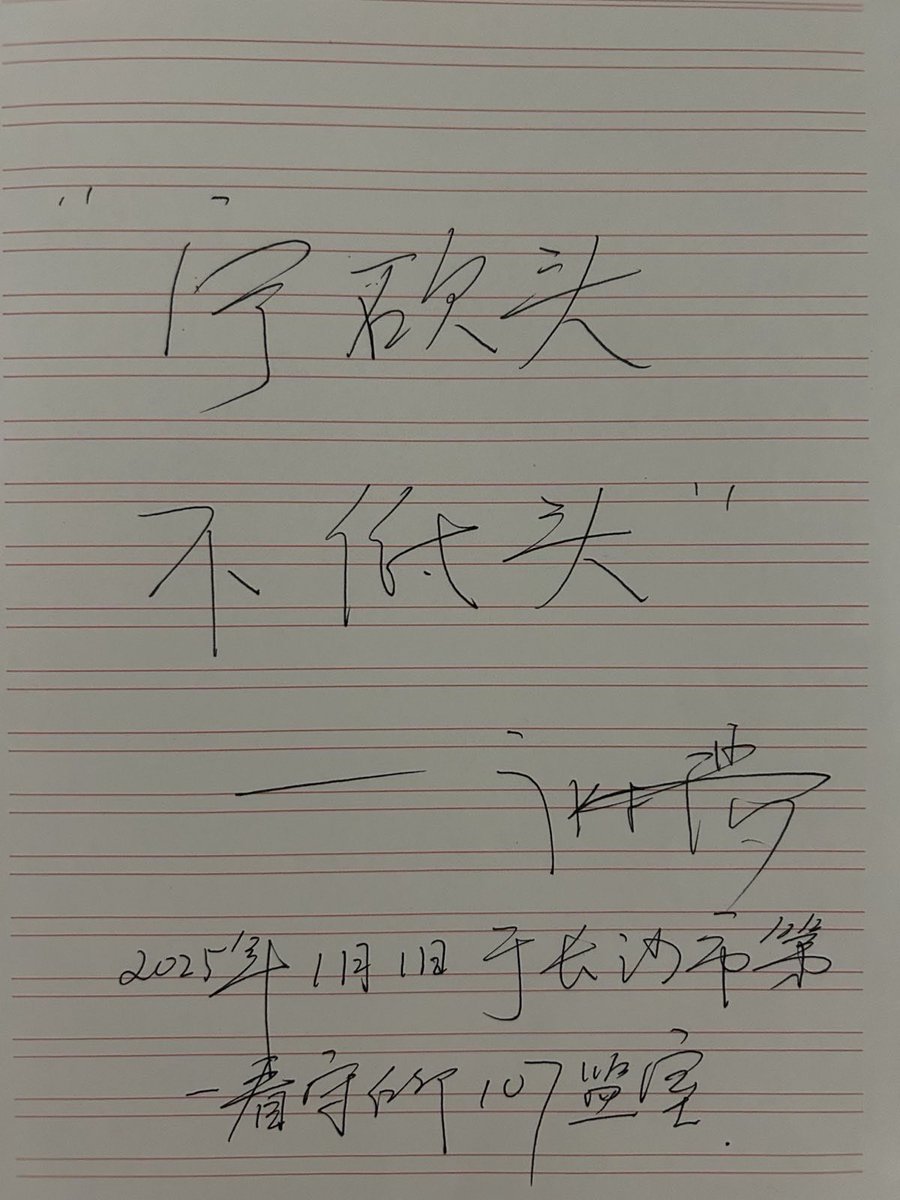 "宁砍头
不低头"
——
2025年1月1日于长沙市第
一看守所107监室.